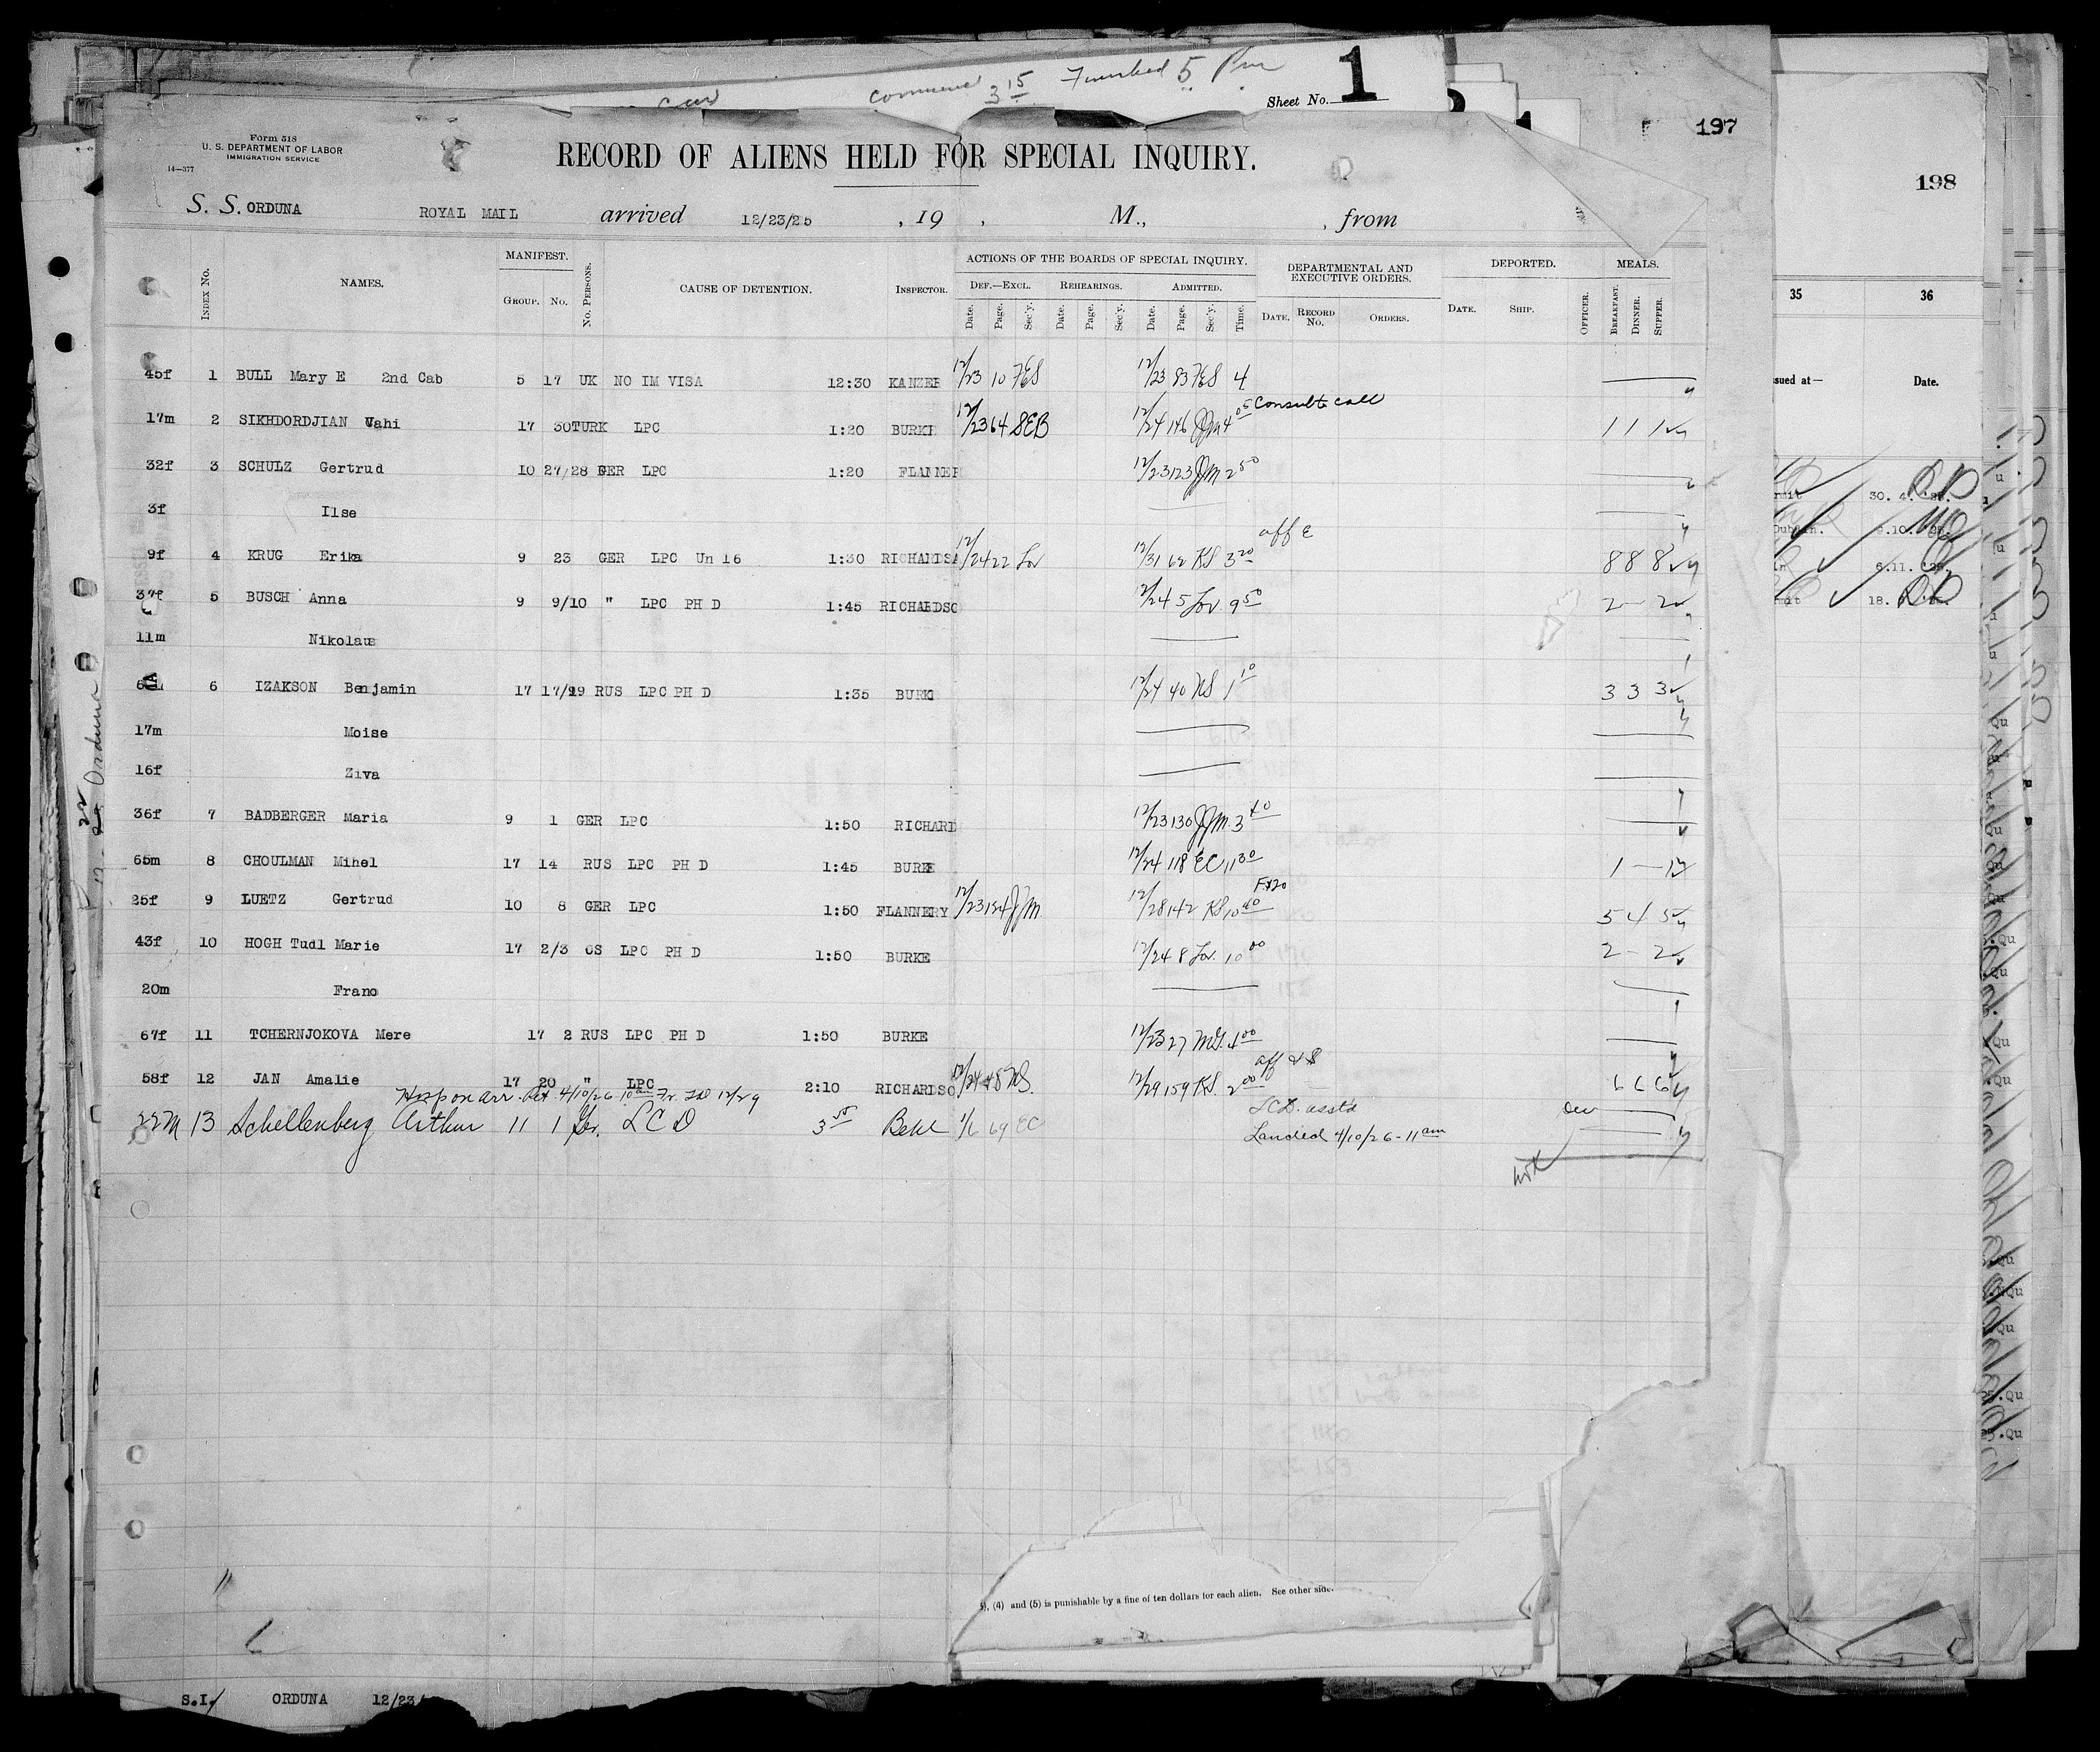 commence 3 15 Finished 5 Pm
Sheet No. 1
197
198
Form 518
U. S. DEPARTMENT OF LABOR
IMMIGRATION SERVICE
14—377
RECORD OF ALIENS HELD FOR SPECIAL INQUIRY.
S. S. ORDUNA ROYAL MAIL arrived 12/23/25 , 19 , M., , from
INDEX No. NAMES. MANIFEST. GROUP. No. No. PERSONS. CAUSE OF DETENTION. INSPECTOR. ACTIONS OF THE BOARDS OF SPECIAL INQUIRY. DEF.—EXCL. Date. Page. Sec'y. REHEARINGS. Date. Page. Sec'y. ADMITTED. Date. Page. Sec'y. Time. DEPARTMENTAL AND EXECUTIVE ORDERS. DATE. RECORD No. ORDERS. DEPORTED. DATE. SHIP. OFFICER. MEALS. BREAKFAST. DINNER. SUPPER.
35 36
sued at— Date.
45f 1 BULL Mary E 2nd Cab 5 17 UK NO IM VISA 12:30 KANZER 12/23 10 FES 12/23 83 FES 4
Consults call
17m 2 SIKHDORDJIAN Vahi 17 30 TURK LPC 1:20 BURKE 12/23 64 SEB 12/24 146 JJM 4 05 1 1 1
32f 3 SCHULZ Gertrud 10 27/28 GER LPC 1:20 FLANNER 12/23 123 JJM 2 50
3f Ilse
aff E
9f 4 KRUG Erika 9 23 GER LPC Un 16 1:30 RICHARDSA 12/24 22 Lov 12/31 62 KS 3 20 8 8 8
37f 5 BUSCH Anna 9 9/10 " LPC PH D 1:45 RICHARDSO 12/24 5 Lov. 9 50 2 — 2
11m Nikolaus
6 IZAKSON Benjamin 17 17/19 RUS LPC PH D 1:35 BURK 12/24 40 NS 1 10 3 3 3
17m Moise
16f Ziva
36f 7 BADBERGER Maria 9 1 GER LPC 1:50 RICHARD 12/23 130 JJM. 3 40
65m 8 CHOULMAN Mihel 17 14 RUS LPC PH D 1:45 BURKE 12/24 118 EC 11 30 1 — 1
25f 9 LUETZ Gertrud 10 8 GER LPC 1:50 FLANNERY 12/23 134 JJM 12/28 142 KS 10 40 5 4 5
43f 10 HOGH Tudl Marie 17 2/3 CS LPC PH D 1:50 BURKE 12/24 8 Lov. 10 00 2 — 2
20m Franc
67f 11 TCHERNJOKOVA Mere 17 2 RUS LPC PH D 1:50 BURKE 12/23 27 MG. 4 00
aff & $
58f 12 JAN Amalie 17 20 " LPC 2:10 RICHARDSO 12/24 48 NS. 12/29 159 KS. 2 00 6 6 6
Hosp on arr. Ret. 4/10/26 10 am
22M 13 Schellenberg Arthur 11 1 Ger. LCD 3 Behl 1/6 69 EC LCD. asst'd
Landed 4/10/26 - 11 am
30. 4.
Dublin.
6.11. '25.
18.
Orduna
), (4) and (5) is punishable by a fine of ten dollars for each alien. See other side.
S.I. ORDUNA 12/23/